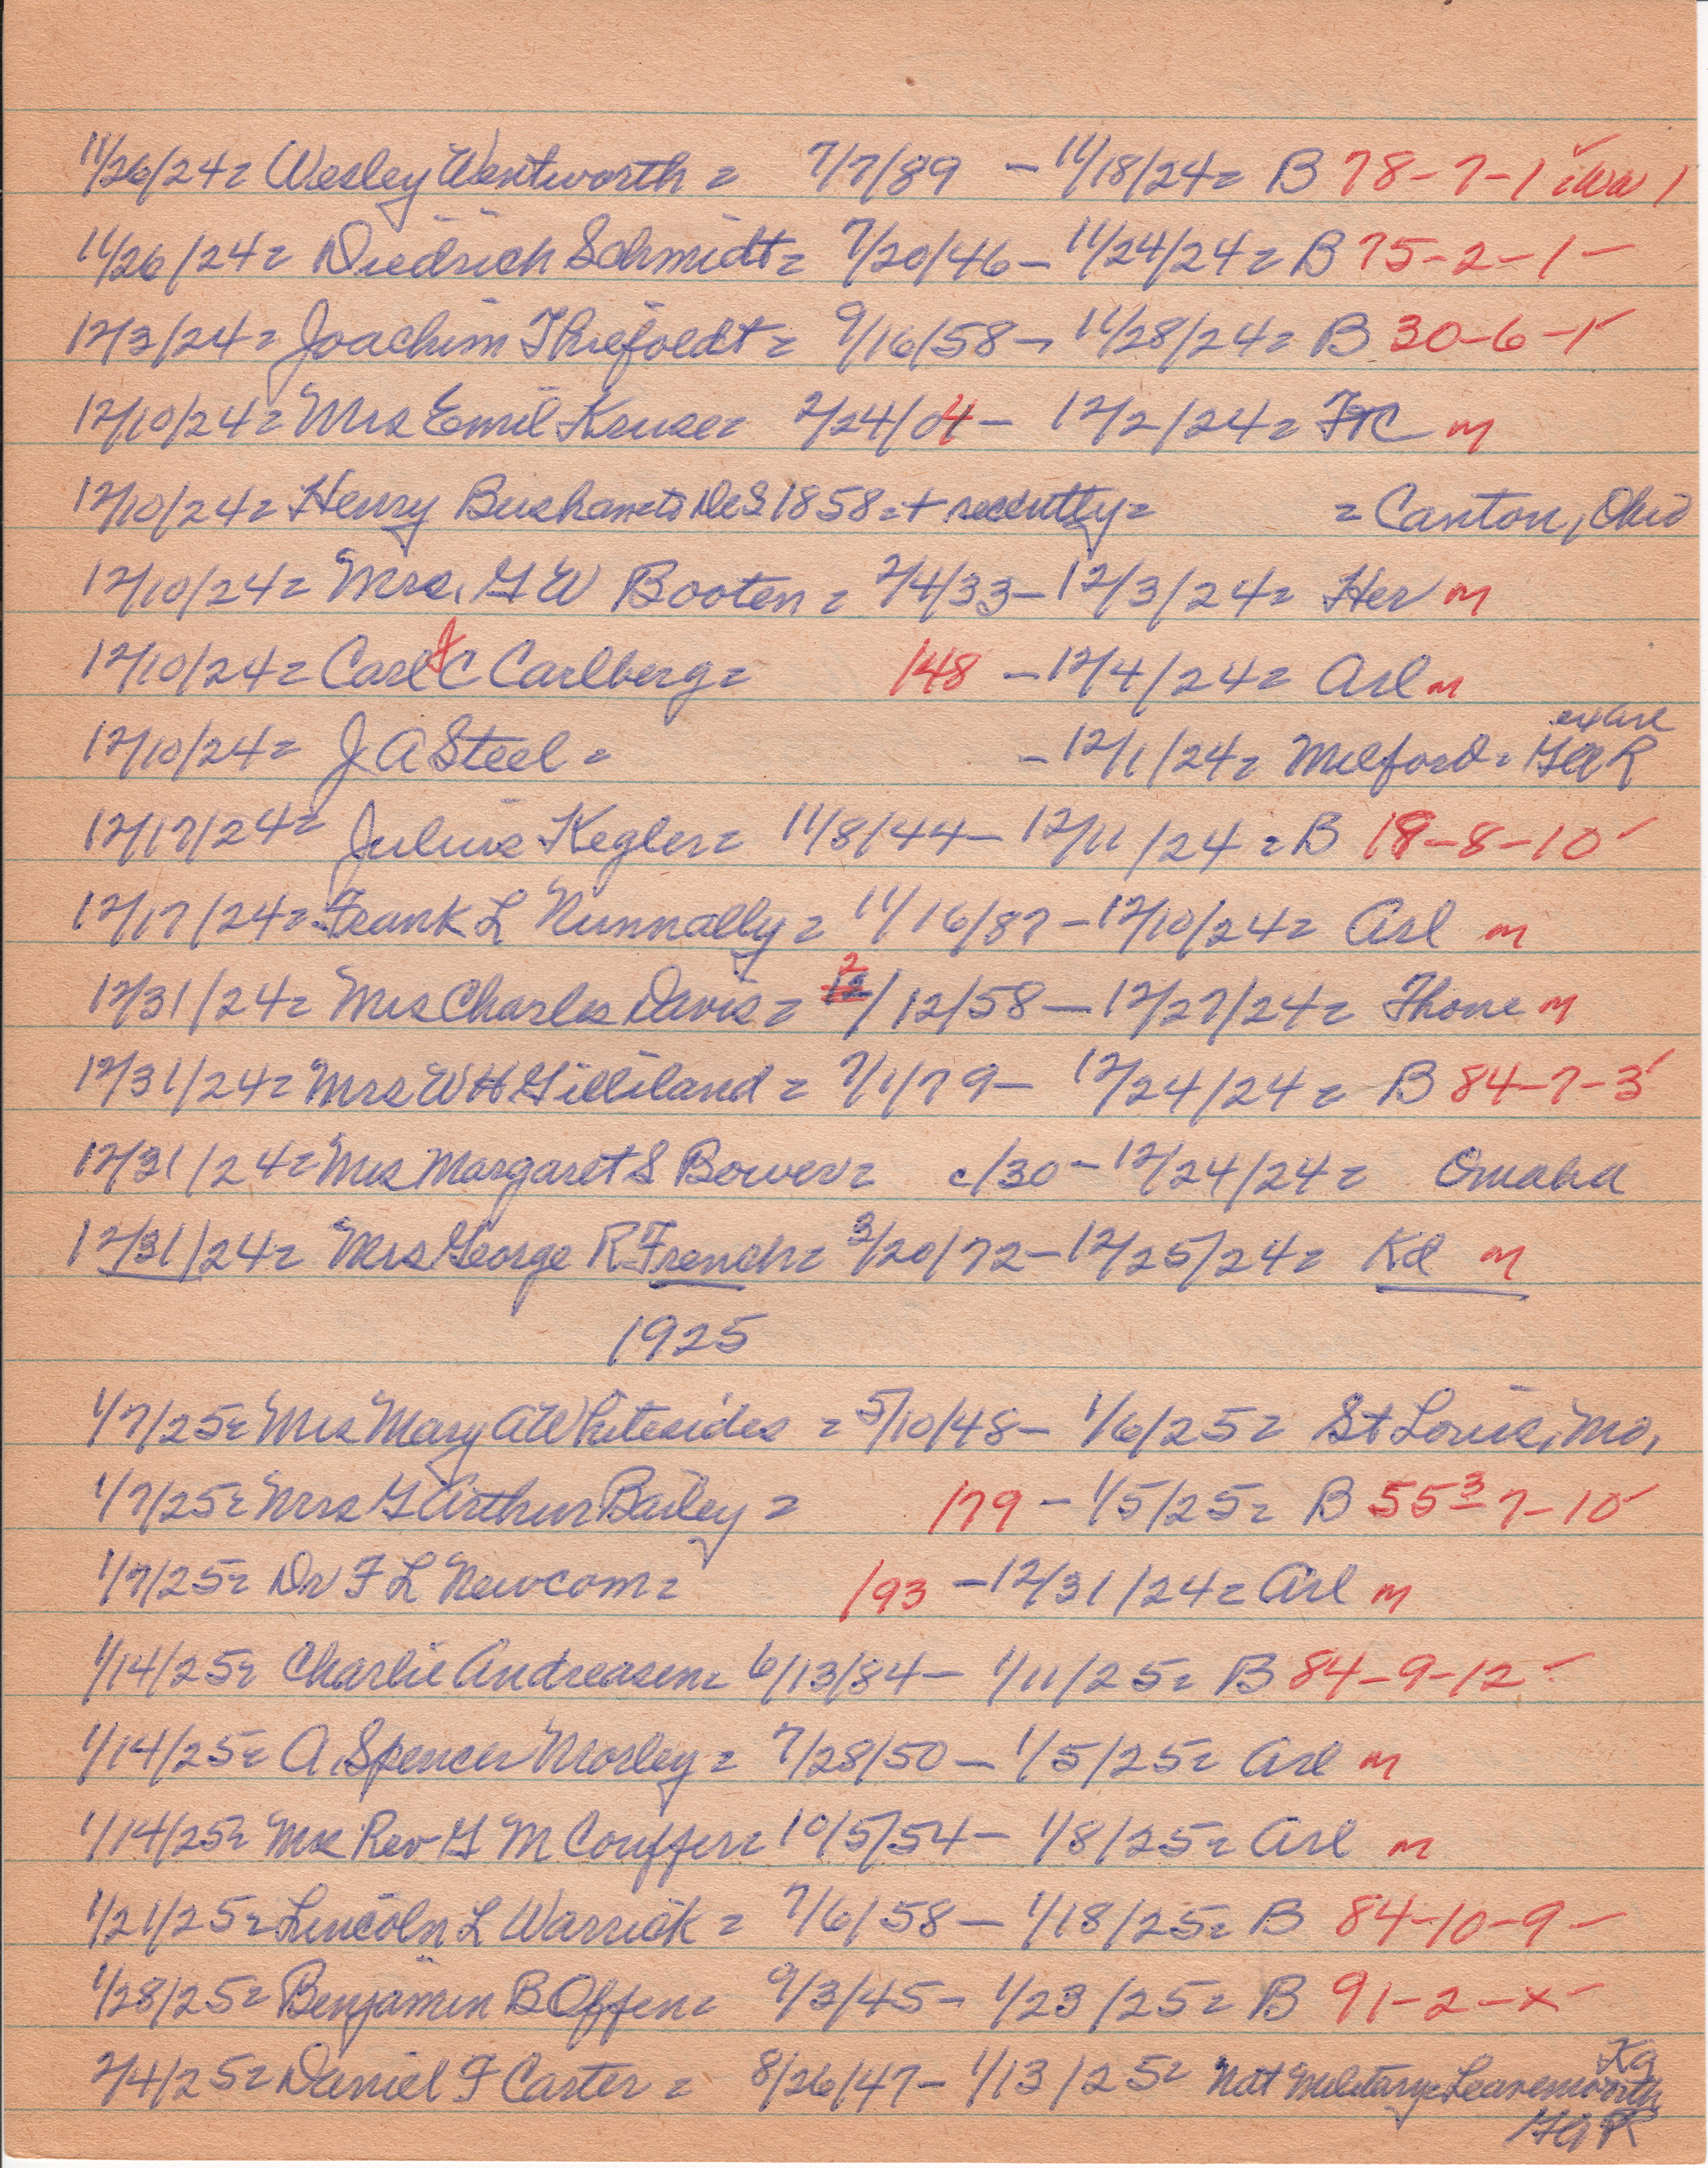 11/26/24= Wesley Wentworth = 7/7/89 - 11/18/24= B 78-7-1 WW 1
11/26/24= Diedrich Schmidt= 7/20/46- 11/24/24= B 75-2-1
12/3/24= Joachim Thiefoldt= 9/16/58- 11/28/24= B 30-6-1
12/10/24= Mrs Emil Kruse= 2/24/04- 12/2/24= FTC M
12/10/24= Henry DeS 1858=+ recently= = Canton, Ohio
12/10/24= Mrs. G W Booten = 2/4/33- 12/3/24= Her M
12/10/24= Carl J C Carlberg= 148 -12/4/24= Arl M
ex Arl
12/10/24= J A Steel = -12/1/24= Milford= GAR
12/17/24= Julius Kegler= 11/8/44- 12/11/24= B 18-8-10
12/17/24= Frank L Nunnally= 11/16/87-12/10/24= Arl M
2
12/31/24= Mrs Charles Davis= 12/12/58-12/27/24= Thone M
12/31/24= Mrs W H Gilliland= 7/1/79- 12/24/24= B 84-7-3
12/31/24= Mrs Margaret S Bower= c/30-12/24/24= Omaha
12/31/24= Mrs George R French= 3/20/72-12/25/24= Kd M
1925
1/7/25= Mrs Mary A Whitesides = 5/10/48- 1/6/25= St Louis, Mo,
1/7/25= Mrs G Arthur Bailey = 179 - 1/5/25= B 55 3 7-10
1/7/25= Dr F L Newcom= 193 -12/31/24= Arl M
1/14/25= Charlie Andreasen= 6/13/84- 1/11/25= B 84-9-12
1/14/25= A. Spencer Morley= 7/28/50- 1/5/25= Arl M
1/14/25= Mrs Rev G M Couffer= 10/5/54- 1/8/25= Arl M
1/21/25= Lincoln L Warrick = 7/6/58- 1/18/25= B 84-10-9
1/28/25= Benjamin B Offen= 9/3/45- 1/23/25= B 91-2-x
Ka
2/4/25= Daniel F Carter = 8/26/47- 1/13/25= Nat Military= Leavenworth
GAR